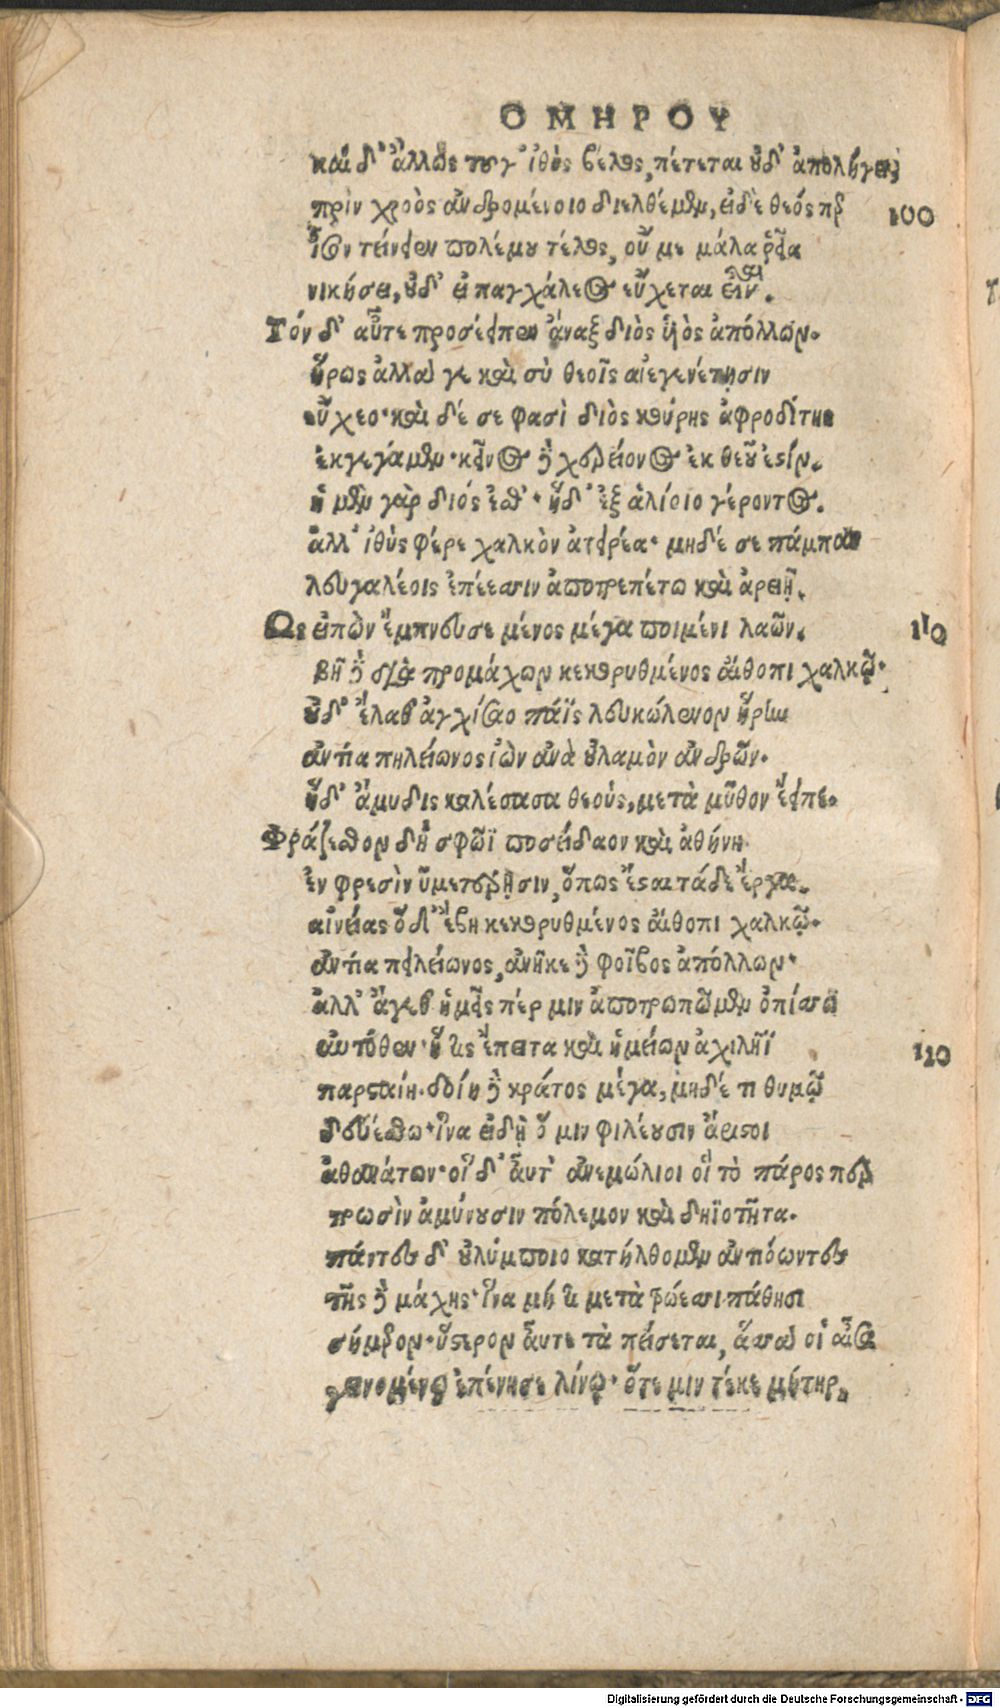 ΟΜΗΡΟΥ
καὶ δ' ἄλλως τουγ' ἰθὺς βέλος, πέτεται οὐδ' ἀπολήγει
πρὶν χροὸς ἀνδρομένοιο διελθέμεν, εἰ δὲ θεός περ 100
ἶσον τείνειεν πολέμου τέλος, οὔ με μάλα ῥεῖα
νικήσει, οὐδ' εἰ παγχάλκεος εὔχεται εἶναι.
Τόν δ' αὖτε προσέειπεν ἄναξ διὸς ἱὸς ἀπόλλων.
ἥρως ἀλλ' ἄγε καὶ σὺ θεοῖς αἰεγενέτησιν
εὔχεο· καὶ δέ σε φασὶ διὸς κούρης ἀφροδίτης
ἐκγεγάμεν· κεῖνος δὲ χερείονος ἐκ θεοῦ ἐστίν.
ἡ μὲν γὰρ διός ἐσθ'· ἡ δ' ἐξ ἁλίοιο γέροντος.
ἀλλ' ἰθὺς φέρε χαλκὸν ἀτειρέα· μηδέ σε πάμπαν
λευγαλέοις ἐπέεσσιν ἀποτρεπέτω καὶ ἀρειῇ.
Ως εἰπὼν ἔμπνευσε μένος μέγα ποιμένι λαῶν. 110
βῆ δὲ διὰ προμάχων κεκορυθμένος αἴθοπι χαλκῷ·
οὐδ' ἔλαθ' ἀγχίσαο πάϊς λευκώλενον ἥρην
ἀντία πηλείωνος ἰὼν ἀνὰ οὐλαμὸν ἀνδρῶν.
ἡ δ' ἄμυδις καλέσασα θεοὺς, μετὰ μῦθον ἔειπε.
Φράζεσθον δὴ σφῶϊ ποσείδαον καὶ ἀθήνη.
ἐν φρεσὶν ὑμετέρῃσιν, ὅπως ἔσται τάδε ἔργα.
αἰνείας ὅδ' ἔβη κεκορυθμένος αἴθοπι χαλκῷ.
ἀντία πηλείωνος, ἀνῆκε δὲ φοῖβος ἀπόλλων·
ἀλλ' ἄγεθ' ἡμεῖς πέρ μιν ἀποτρωπῶμεν ὀπίσσω
αὐτόθεν· ἤ τις ἔπειτα καὶ ἡμείων ἀχιλῆϊ 120
παρσταίη. δοίη δὲ κράτος μέγα, μηδέ τι θυμῷ
δευέσθω· ἵνα εἰδῇ ὅ μιν φιλέουσιν ἄριστοι
ἀθανάτων· οἱ δ' αὖτ' ἀνεμώλιοι οἳ τὸ πάρος περ
τρωσὶν ἀμύνουσιν πόλεμον καὶ δηϊοτῆτα.
πάντες δ' οὐλύμποιο κατήλθομεν ἀντιόωντες
τῆς δὲ μάχης· ἵνα μή τι μετὰ τρώεσσι πάθησι
σήμερον· ὕστερον αὖτε τὰ πείσεται, ἅσσά οἱ αἶσα
γεινομένῳ ἐπένησε λίνῳ· ὅτε μιν τέκε μήτηρ.
Digitalisierung gefördert durch die Deutsche Forschungsgemeinschaft - DFG